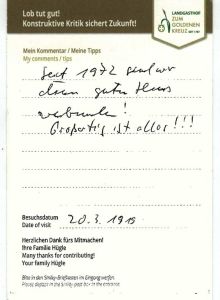 Lob tut gut!
Konstruktive Kritik sichert Zukunft!
LANDGASTHOF
ZUM
GOLDENEN
KREUZ
Mein Kommentar / Meine Tipps
My comments / tips
Seit 1972 sind wir
dem guten Haus
verbunden!
Großartig ist alles!!!
Besuchsdatum
Date of visit
20.3.1915
Herzlichen Dank fürs Mitmachen!
Ihre Familie Hügle
Many thanks for contributing!
Your family Hügle
Bitte in den Smiley-Briefkasten im Eingang werfen.
Please deposit in the smiley post box in the entrance.